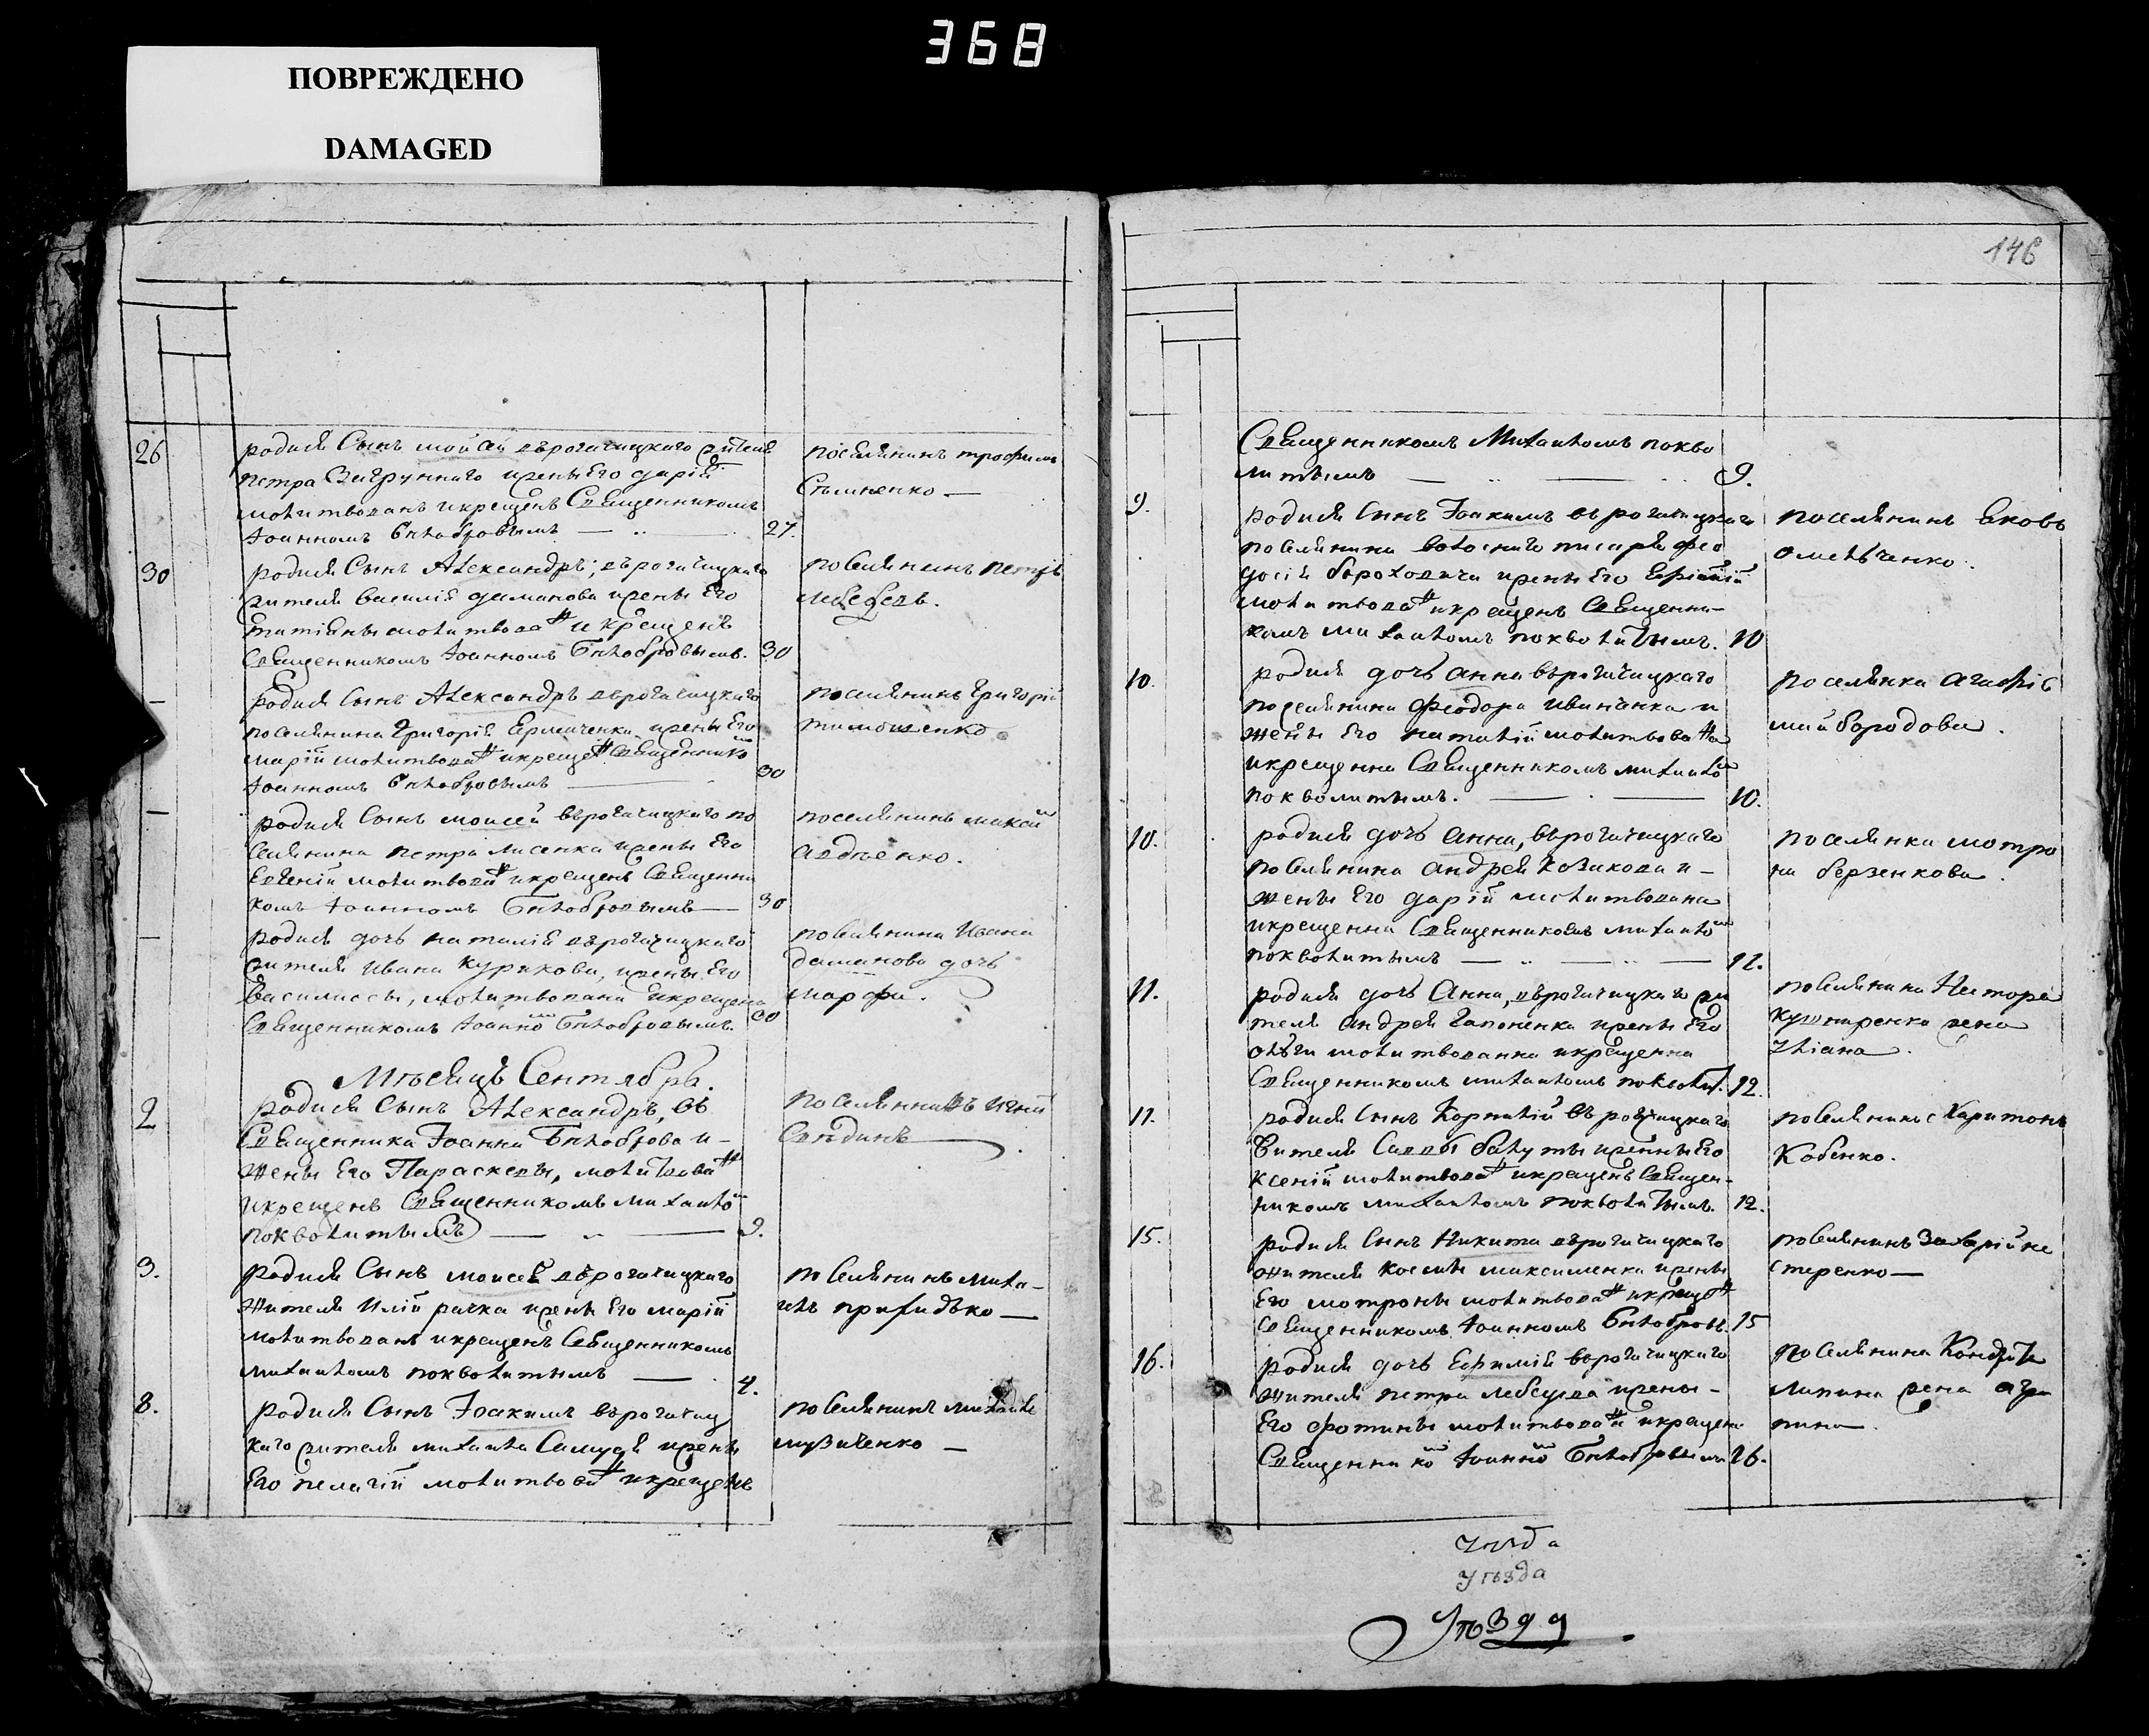 368
ПОВРЕЖДЕНО
DAMAGED
26
родися Сынъ мойсей върогачицкаго жителя
петра Загрунного иженыЕго дарій
молитвованъ икрещенъ Священникомъ
Іоанномъ Бѣлобровымъ — 27.
поселянинъ трофимъ
30
родися Сынъ Александръ, върогачицкаго
жителя василія даманова ижены Его
татіяны молитвованъ икрещенъ
Священникомъ Іоанномъ Бѣлобровымъ. 30
поселянинъ петръ
лебедь.
—
родися Сынъ Александръ върогачицкаго
поселянина Григорія Ермаченка ижены Его
марій молитвованъ икрещенъ Священникомъ
Іоанномъ Бѣлобровымъ — 30
поселянинъ Григорій
тимошенко
—
родися Сынъ моисей върогачицкаго по
селянина петра лисенка ижены Его
Евгеній молитвованъ икрещенъ Священни
комъ Іоанномъ Бѣлобровымъ — 30
поселянинъ максим
авдѣенко.
—
родися дочь наталія върогачицкаго
жителя ивана курикова, ижены Его
Василиссы, молитвована икрещена
Священникомъ Іоанномъ Бѣлобровымъ. 30
поселянина Ивана
даманова дочь
марфа.
Мѣсяцъ Сентябрь.
2
родися Сынъ Александръ, въ
Священника Іоанна Бѣлоброва и –
жены Его Параскевы, молитвованъ
икрещенъ Священникомъ михаиломъ
покволитымъ — 3.
3.
родися Сынъ моисей върогачицкаго
жителя Илій рачка ижены Его марій
молитвованъ икрещенъ Священникомъ
михаиломъ покволитымъ — 4.
поселянинъ миха-
илъ прихидько —
8.
родися Сынъ Іоакимъ върогачиц
каго жителя михаила Самудя ижены
Его пелагій молитвованъ икрещенъ
поселянинъ михаилъ
музиченко —
146
Священникомъ Михаиломъ покво
литымъ — 9.
9.
родися Сынъ Іоакимъ върогачицкаго
поселянина волосного писаря фео
досія бороходича ижены Его
молитвованъ икрещенъ Священни-
комъ михаиломъ покволитымъ. 10
поселянинъ Яковъ
омельченко.
10.
родися дочь анна върогачицкаго
поселянина Феодора ивананка и
жены Его наталій молитвована
икрещенна Священникомъ михаиломъ
покволитымъ. — 10.
поселянка агафія
майбородова.
10.
родися дочь Анна, върогачицкаго
поселянина андрея козикова и –
жены Его дарій молитвована
икрещенна Священникомъ михаиломъ
покволитымъ — 11.
поселянка мотро
на берзенкова.
11.
родися дочь Анна, върогачицкаго жи
теля андрея гапоненка ижены Его
ольги молитвованна икрещенна
Священникомъ михаиломъ покволит. 12.
поселянина Нестора
кушниренка жена
11.
родися Сынъ Корнилій върогачицкаго
жителя Саввы бакуты иженыЕго
ксеній молитвованъ икрещенъ Священ-
никомъ михаиломъ покволитымъ. 12.
поселянинъ Харитонъ
Кобенко.
15.
родися Сынъ Никита върогачицкаго
жителя космы максименка ижены
Его мотроны молитвованъ икрещенъ
Священникомъ Іоанномъ Бѣлобров. 15
поселянинъ Захарій не
стеренко —
16.
родися дочь Ефимія върогачицкаго
жителя петра лебедева ижены –
Его фотины молитвована икрещена
Священникомъ Іоанномъ Бѣлобровымъ 16.
поселянина Кондрата
липина жена агри
пина —
уѣзда
уѣзда